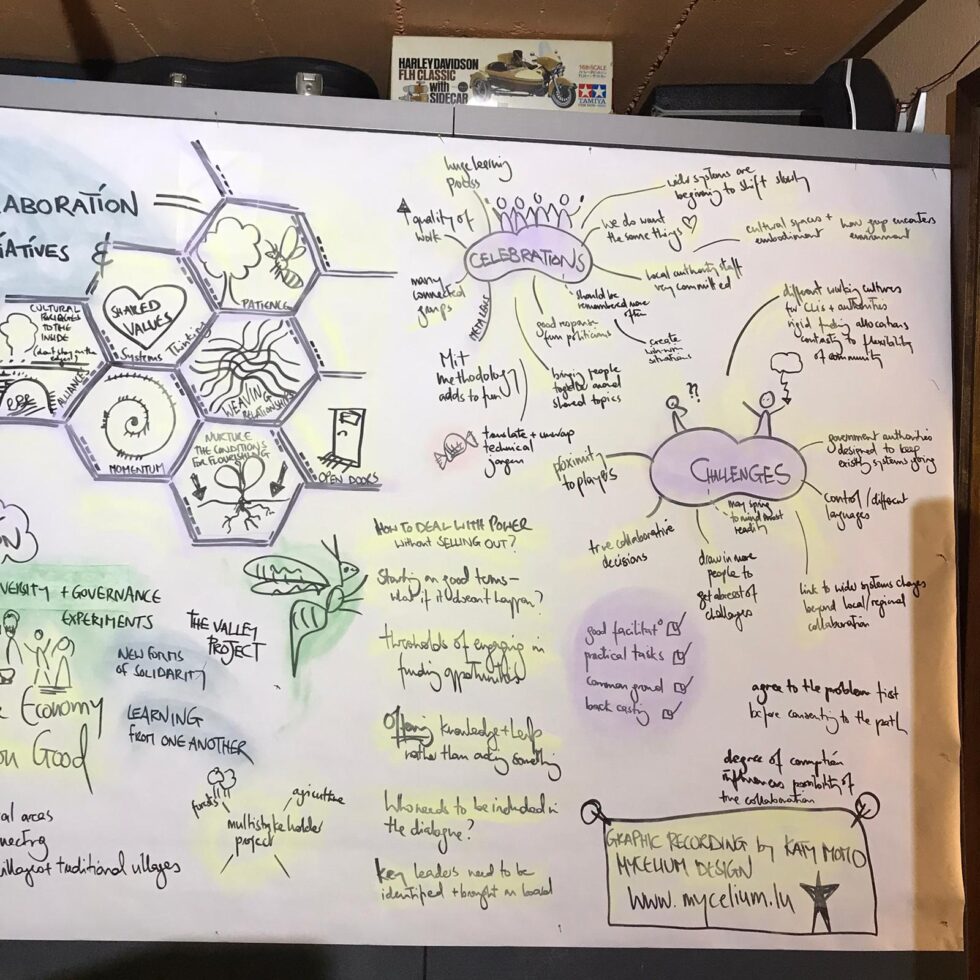 HARLEY DAVIDSON
FLH CLASSIC
with
SIDECAR
TAMIYA
LABORATION
IATIVES &
CULTURAL
TO THE
INSIDE
SHARED
VALUES
Systems Thinking
PATIENCE
ALLIANCES
MOMENTUM
WEAVING
RELATIONSHIPS
NURTURE
THE CONDITIONS
FOR FLOURISHING
OPEN DOORS
huge learning
process
quality of
work
many
connected
groups
CELEBRATIONS
wider systems are
beginning to shift slowly
we do want
the same things
cultural syncros +
embodiment
how group encounters
environment
local authority staff
very committed
should be
remembered more
often
create
win-win
situations
good response
from politicians
bringing people
together around
shared topics
METAPLACE
MIT
methodology
adds to fun
translate + unwrap
technical
jargon
different working cultures
for CLIs + authorities
rigid funding allocations
contrasty to flexibility
of community
??
CHALLENGES
proximity
to players
true collaborative
decisions
may spring
to mind most
readily
draw in more
people to
get abreast of
challenges
government authorities
designed to keep
existing systems going
control / different
languages
link to wider systems changes
beyond local/regional
collaboration
HOW TO DEAL WITH POWER
WITHOUT SELLING OUT?
Starting on good terms -
what if it doesn't happen?
thresholds of engaging in
funding opportunities
Offering knowledge + help
rather than asking something
Who needs to be included in
the dialogue?
key leaders need to be
identified + brought on board
good facilitat°
practical tasks
common ground
back casting
agree to the problem first
before consenting to the path
degree of corruption
influences possibility of
true collaboration
ON
VERSITY + GOVERNANCE
EXPERIMENTS
THE VALLEY
PROJECT
NEW FORMS
OF SOLIDARITY
Economy
on Good
LEARNING
FROM ONE ANOTHER
forests
agriculture
multistakeholder
project
ral areas
necting
villages + traditional villages
GRAPHIC RECORDING by KATY
MYCELIUM DESIGN
www.mycelium.lu